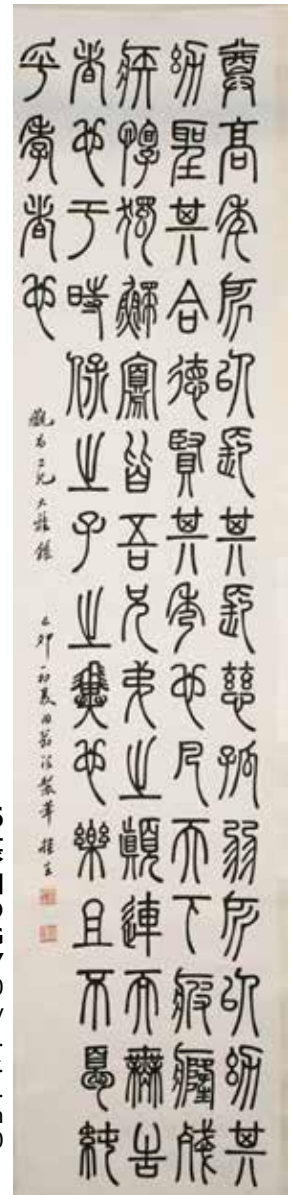 尊高年所以長其長慈孤弱所以幼其
幼聖其合德賢其秀也凡天下疲癃殘
疾惸獨鰥寡皆吾兄弟之顛連而無告
者也于時保之子之翼也樂且不憂純
乎孝者也
二兄大雅鑑
初夏